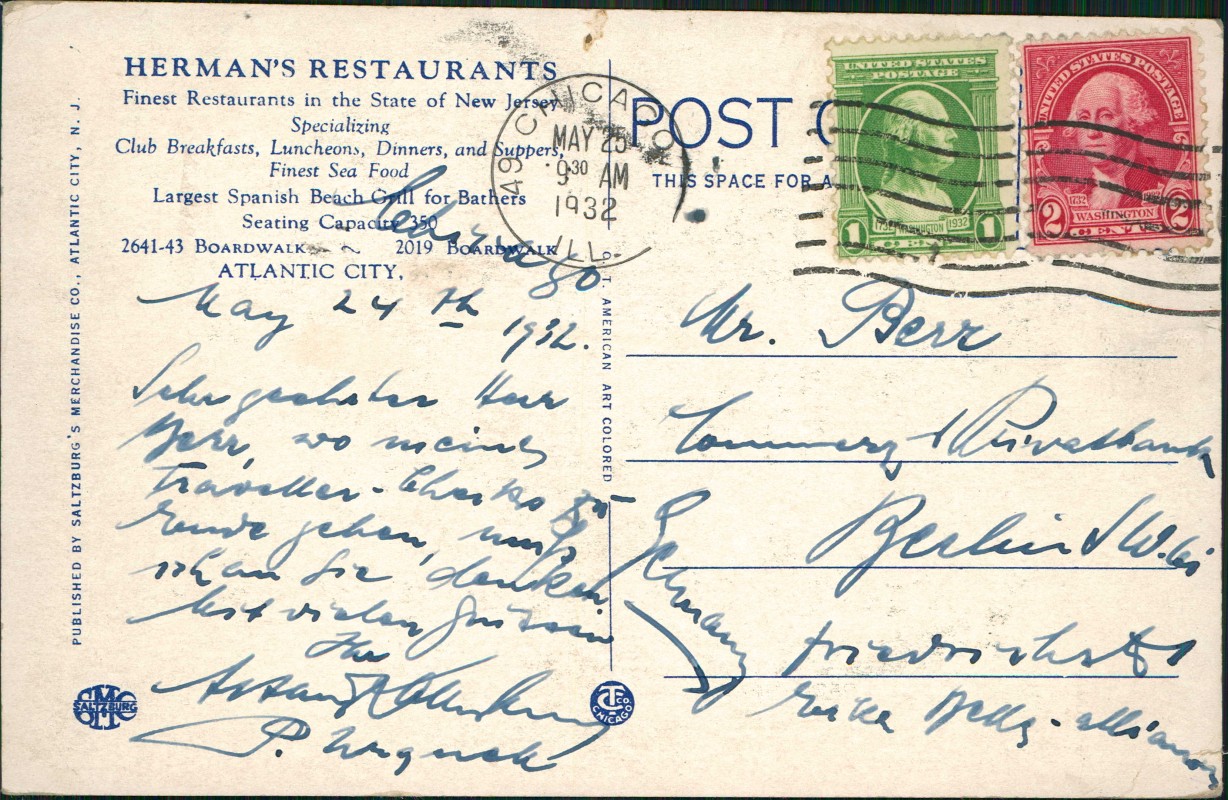 HERMAN'S RESTAURANTS
Finest Restaurants in the State of New Jersey
Specializing
Club Breakfasts, Luncheons, Dinners, and Suppers,
Finest Sea Food
Largest Spanish Beach Grill for Bathers
Seating Capacity 350
2641-43 BOARDWALK 2019 BOARDWALK
ATLANTIC CITY,
PUBLISHED BY SALTZBURG'S MERCHANDISE CO., ATLANTIC CITY, N. J.
SMC
SALTZBURG
Chicago
May 24th
1932.
Sehr geehrter Herr
Berr, wo meine
Traveller-Checks zu
Ende gehen, muß
ich an Sie denken
Mit vielen Grüssen
Ihr
P.
49 CHICAGO
MAY 25
9 30 AM
1932
ILL.
C. T. AMERICAN ART COLORED
CT CO
CHICAGO
POST C
THIS SPACE FOR A
UNITED STATES
POSTAGE
1 1732 WASHINGTON 1932 1
CENT
UNITED STATES POSTAGE
1732
2 WASHINGTON 2
CENTS
Mr. Berr
Commerz & Privatbank
Berlin SW.
Germany
Friedrichst
Ecke Belle-alliance